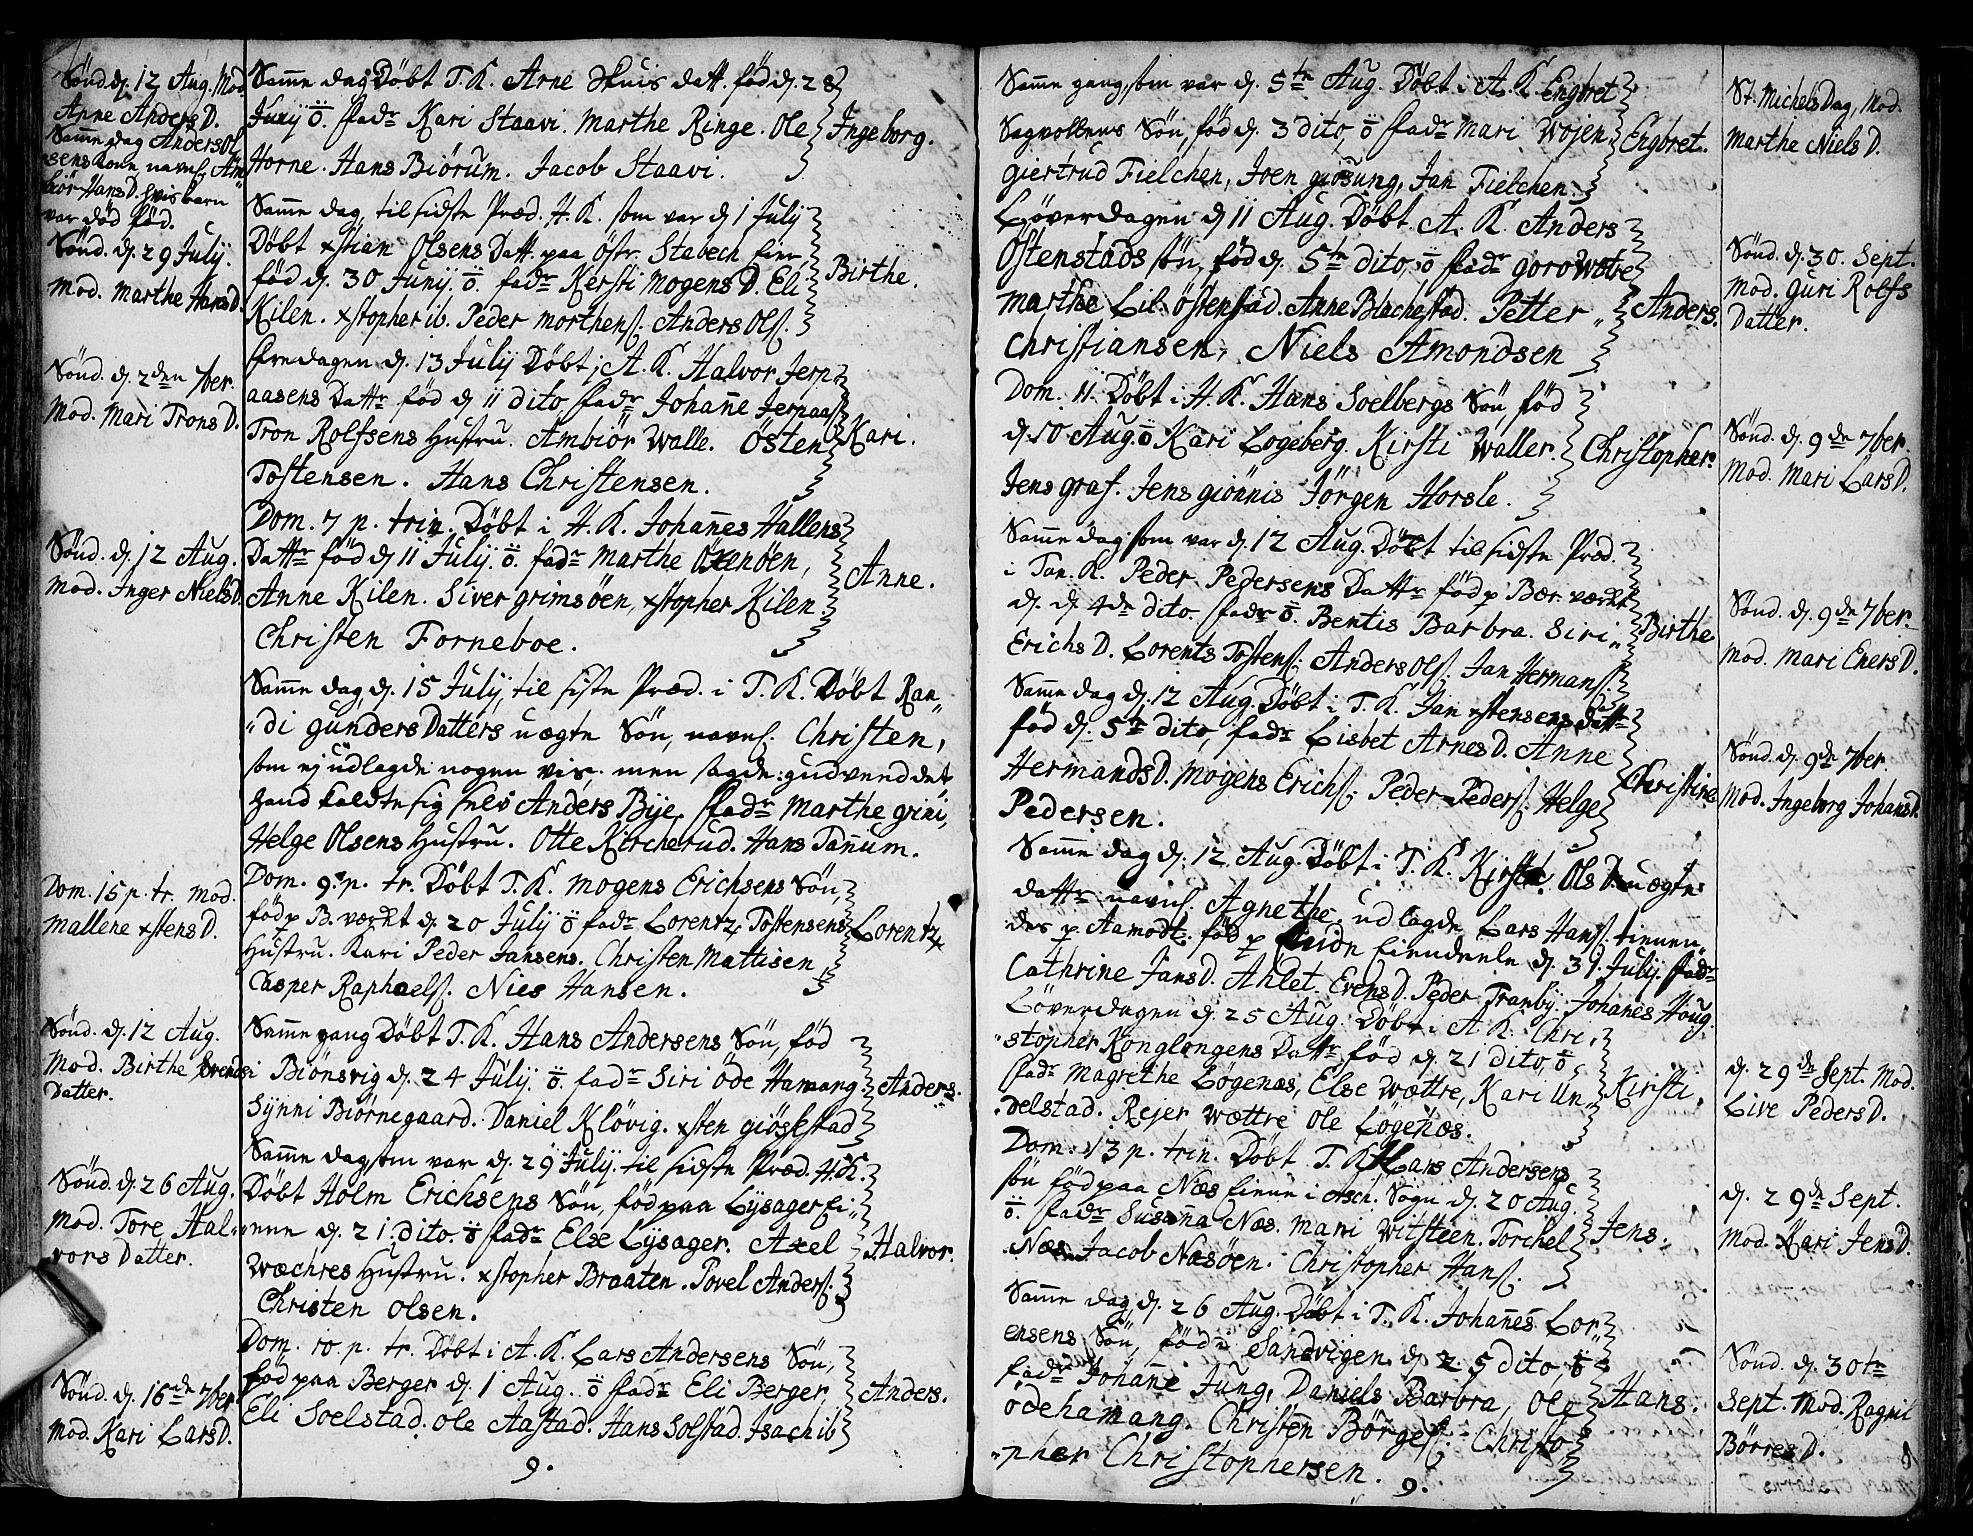 Sönd. d. 12 Aug. Mod.
Anne Anders D.
Samme dag Anders Ol
sens Kone navnl. Am
biör Hans D. hvis barn
var död föd.
Sönd. d. 29 July.
Mod. Marthe Hans D.
Sönd. d. 2den 7ber.
Mod. Mari Trons D.
Sönd. d. 12 Aug.
Mod. Inger Niels D.
Dom. 15 p. tr. Mod.
Mallene xstens D.
Sönd. d. 12 Aug.
Mod. Birthe Evends
Datter.
Sönd. d. 26 Aug.
Mod. Tore Hal-
vors Datter.
Sönd. d. 16de 7ber
Mod. Kari Lars D.
Sam̄e dag Döbt T. K. Arne Skuis datt. föd d. 28
Juny ö. fadr Kari Staavi. Marthe Ringe. Ole
Horne. Hans Biörum. Jacob Staavi.
Ingeborg.
Sam̄e dag, til sidste Præd. H. K. som var d 1 July
Döbt xstian Olsens Datt. paa östr. Stabech Eier,
föd d. 30 Juny. ö. fadr Kersti Mogens D. Eli
Kilen. xstopher ib. Peder Morthens. Anders Ols.
Birthe.
Fredagen d. 13 July Döbt i A. K. Halvor Jerp
aasens Dattr föd d 11 dito fadr Johan̄e Jerpaas
Tron Rolfsens Hustru. Ambiör Walle. Östen
Tostensen. Hans Christensen.
Kari.
Dom. 7 p. trin. Döbt i H. K. Johan̄es Hallens
Dattr föd d 11 July. ö. fadr Marthe Öxenöen,
Anne Kilen. Siver Grimsöen, xstopher Kilen.
Christen Forneboe.
Anne.
Sam̄e dag, d. 15 July, til siste Præd. i T. K. Döbt Ran„
„di Gunders Datters uægte Sön, navnl. Christen,
som ej udlagde nogen vis. men sagde: gud vend det,
hand kaldte sig selv Anders Bye. fadr Marthe Grini,
Helge Olsens Hustru. Otte Kircherud. Hans Tan̄um.
Dom. 9. p. tr. Döbt T. K. Mogens Erichsens Sön,
föd p B. værkt d. 20 July ö fadr Lorentz Tostensens
Hustru. Kari Peder Jansens. Christen Mattisen
Casper Raphaels. Nies Hansen.
Lorentz
Sam̄e gang Döbt T. K. Hans Andersens Sön, föd
i Biönsvig d. 24 July. ö. fadr Siri öde Hamang.
Synni Biörnegaard. Daniel Klövig. xsten giösestad
Anders.
Sam̄e dag som var d. 29 July. til sidste Præd. H. K.
Döbt Holm Erichsens Sön, föd paa Lysager Ei„
„ene d. 21. dito. ö fadr Else Lysager. Axel
Wæchres Hustru. xstopher Braaten. Povel Anders.
Christen Olsen.
Halvor.
Dom. 10. p. tr. Döbt i A. K. Lars Andersens Sön,
föd paa Berger d. 1 Aug. ö fadr Eli Berger,
Eli Soelstad. Ole Aastad. Hans Solstad. Isach ib
Anders.
9.
Sam̄e gang, som var d. 5te Aug. Döbt i A. K. Engbret
Sagvollens Sön, föd d. 3 dito, ö fadr Mari Wojen
Giertrud Fielchen, Joen giösung, Jan Fielchen.
Engbret.
Löverdagen d 11 Aug. Döbt A. K. Anders
Östenstads sön, föd d. 5te dito, ö fadr Goro Wøtre
Marthe Lil-östenstad. Anne Blachestad. Petter
Christiansen, Niels Amondsen
Anders.
Dom. 11. Döbt i H. K. Hans Soelbergs Sön, föd
d. 10 Aug. ö Kari Logeberg. Kirsti Waller.
Jens graf. Jens giönnis Jörgen Horsle.
Christopher.
Sam̄e dag som var d. 12 Aug. Döbt til sidste Præd.
i Tan. K. Peder Pedersens Dattr föd p Bær. værkt
d. d. 4de dito. fadr ö. Bentis Barbra. Siri
Erichs D. Lorents Tostens. Anders Ols. Jan Hermans.
Birthe
Sam̄e dag d. 12 Aug. Döbt i T. K. Jan xstensens Dattr
föd d. 5te dito, fadr Lisbet Arnes D. Anne
Hermands D. Mogens Erichs. Peder Peders. Helge
Pedersen.
Christine
Sam̄e dag d. 12 Aug. Döbt i T. K. Kirsti Ols D. uægte
dattr navnl. Agnethe. udlagde Lars Hans. tienen„
des p Aamodt. föd p Eiendeele d. 31. July. fadr
Cathrine Jans D. Ahlet Evens D. Peder Tranby. Johan̄es Houg.
Löverdagen d. 25 Aug. Döbt i A. K. Chri„
„stopher Konglongens Dattr föd d. 21 dito, ö
fadr Magrethe Lögenæs, Else Wættre, Kari Un„
„delstad. Rejer Wættre Ole Lögenæs.
Kirsti.
Dom. 13 p. trin. Döbt. T. K. Lars Andersens
sön föd paa Næs Eiene i Asch. Sogn d. 20 Aug.
ö. fadr Susan̄a Næs. Mari Witsteen. Torchel
Næs. Jacob Næsöen. Christopher Hans.
Jens.
Sam̄e dag, d. 26 Aug. Döbt i T. K. Johan̄es Lor„
ensens Sön, föd i Sandvigen d. 25 dito, ö
fadr Johan̄e Jung, Daniels Barbra, Ole
ödehamang. Christen Börges. Christo„
„pher Christophersen.
Hans.
9.
St. Michels Dag, Mod.
Marthe Niels D.
Sönd. d. 30. Sept.
Mod. Guri Rolfs
Datter.
Sönd. d. 9de 7ber.
Mod. Mari Lars D.
Sönd. d. 9de 7ber.
Mod. Mari Eners D.
Sönd. d. 9de 7ber
Mod. Ingeborg Johans D.
d. 29de Sept. Mod.
Live Peders D.
d. 29de Sept.
Mod. Kari Jens D.
Sönd. d. 30te
Sept. Mod. Ragni
Börres D.